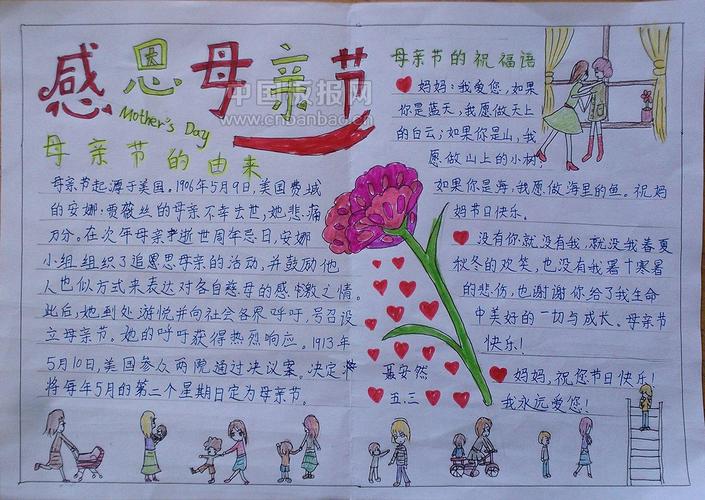 感恩母亲节
中国板报网
www.cnbanbao.cn
Mother's Day
母亲节的由来
母亲节起源于美国。1906年5月9日,美国费城
的安娜·贾薇丝的母亲不幸去世,她悲痛
万分。在次年母亲逝世周年忌日,安娜
小组组织了追思母亲的活动,并鼓励他
人也似方式来表达对各自慈母的感激之情。
此后,她到处游悦并向社会各界呼吁,号召设
立母亲节。她的呼吁获得热烈响应。1913年
5月10日,美国参众两院通过决议案。决定
将每年5月的第二个星期日定为母亲节。
母亲节的祝福语
妈妈:我爱您,如果
你是蓝天,我愿做天上
的白云;如果你是山,我
愿做山上的小树,
如果你是海,我愿做海里的鱼。祝妈
妈节日快乐。
没有你就没有我,就没我春夏
秋冬的欢笑,也没有我署十寒暑
的悲伤,也谢谢你给了我生命
中美好的一切与成长。母亲节
快乐!
妈妈,祝您节日快乐!
我永远爱您!
聂安然
五.三